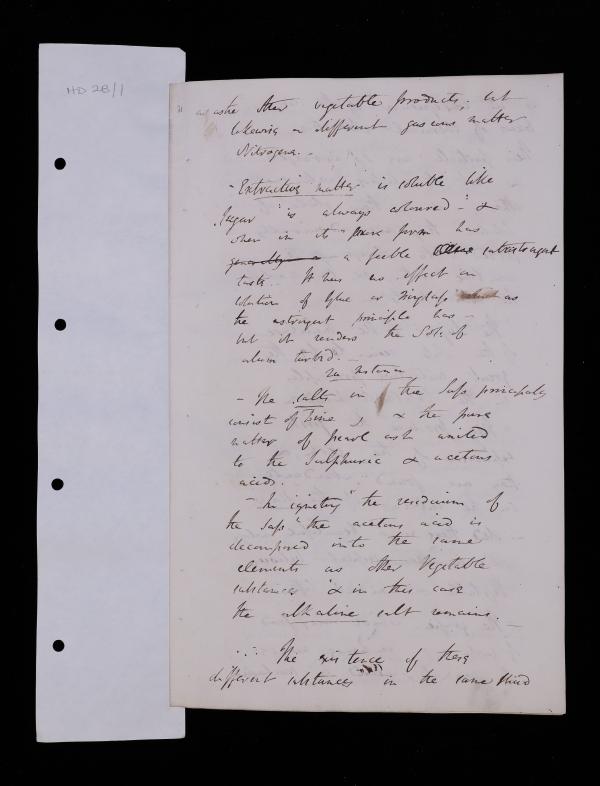 HD 2B/1
other vegetable products; but
likewise a different gaseous matter
Nitrogene. –
– Extractive matter is soluble like
sugar is always coloured – &
when in its pure form has
generally a a feeble subastringent
taste. It has no effect on
solution of Glue or Isinglass as
the astringent principle has –
but it renders the Sol: of
alum turbid. –
In Instance
– The salts in the Saps principally
consist of Lime, & the pure
matter of pearl ash united
to the Sulphuric & acetous
acids.
– In igniting the residuum of
the Saps the acetous acid is
decomposed into the same
elements as other Vegetable
substances & in this case
the alkaline salt remains. –
The existence of these
different substances in the same fluid